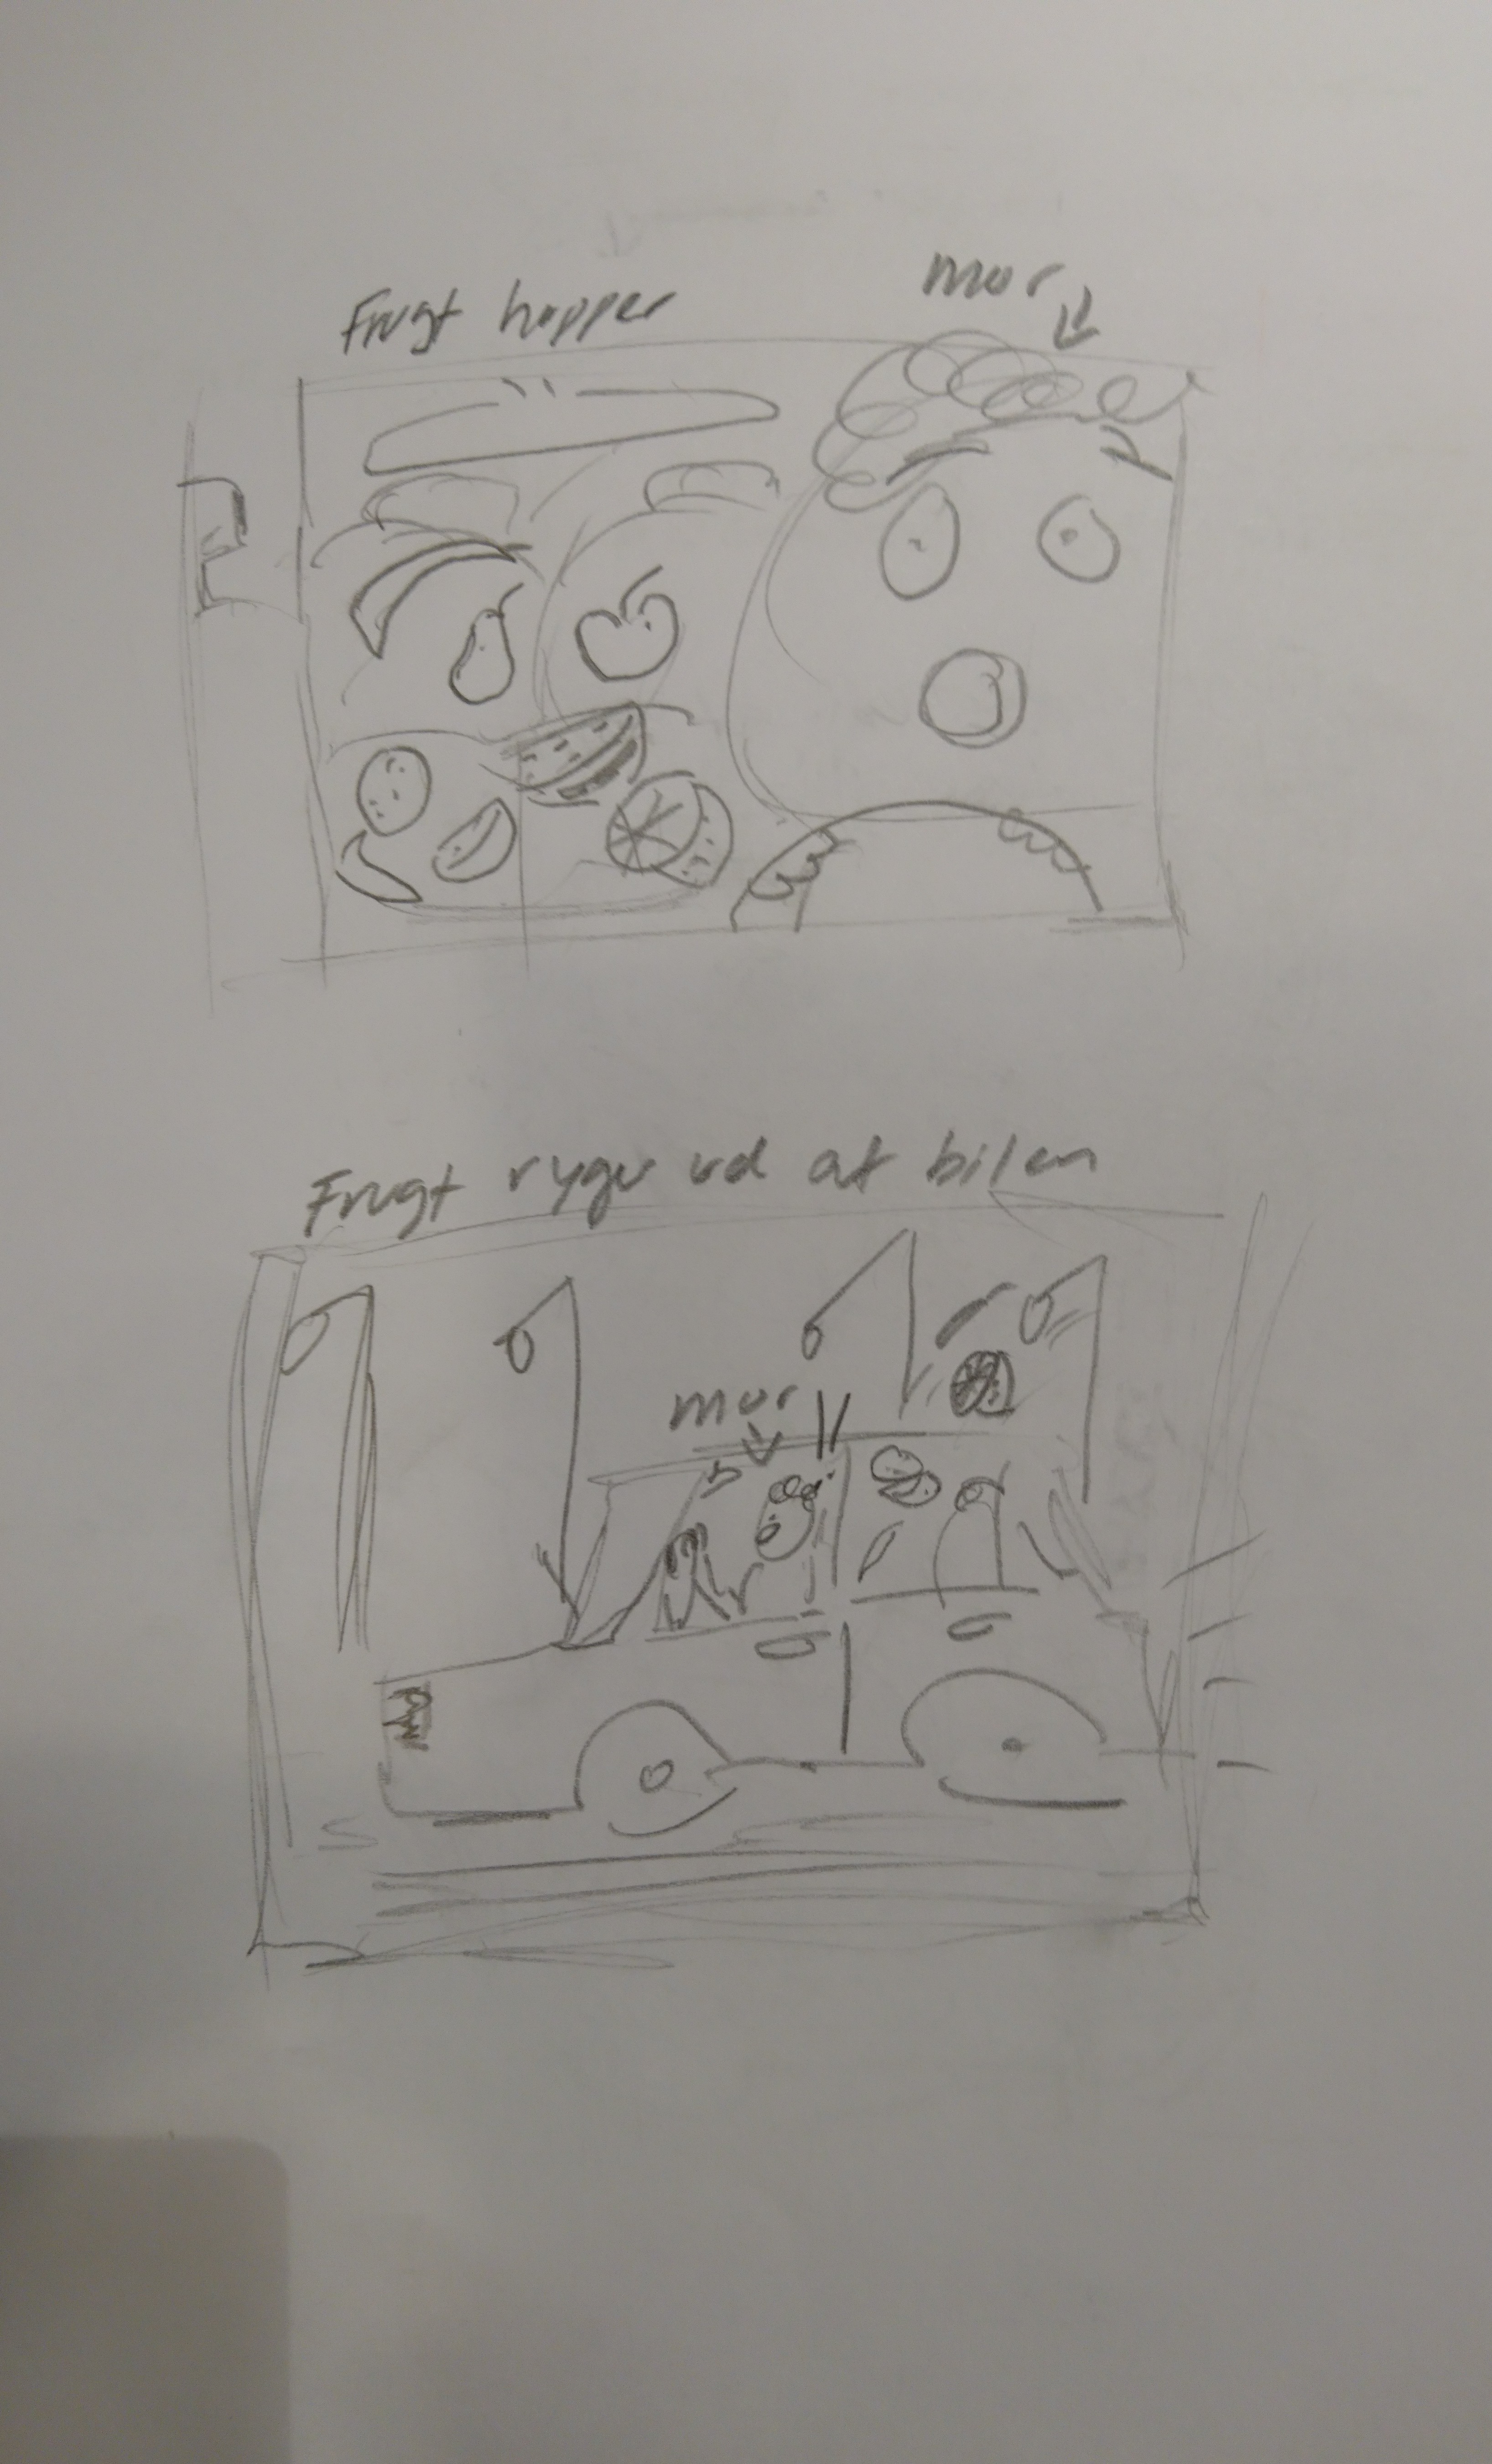 Frugt hopper
mor
Frugt ryger ud af bilen
mor